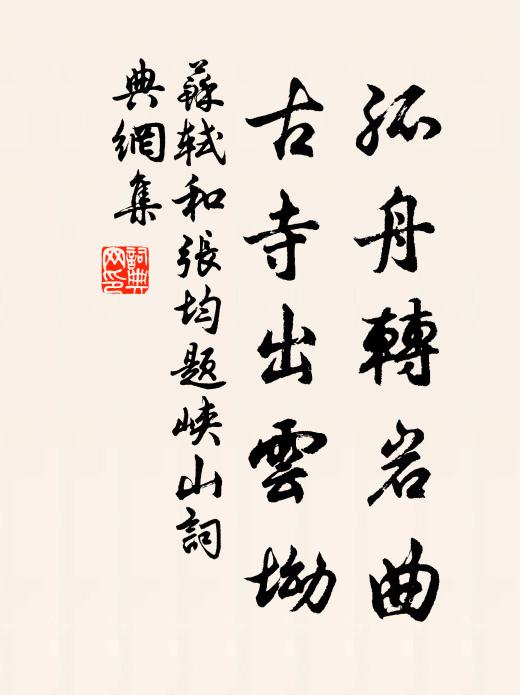 孤舟轉岩曲
古寺出雲坳
蘇軾和張均題峽山詞
典網集
詞典網印